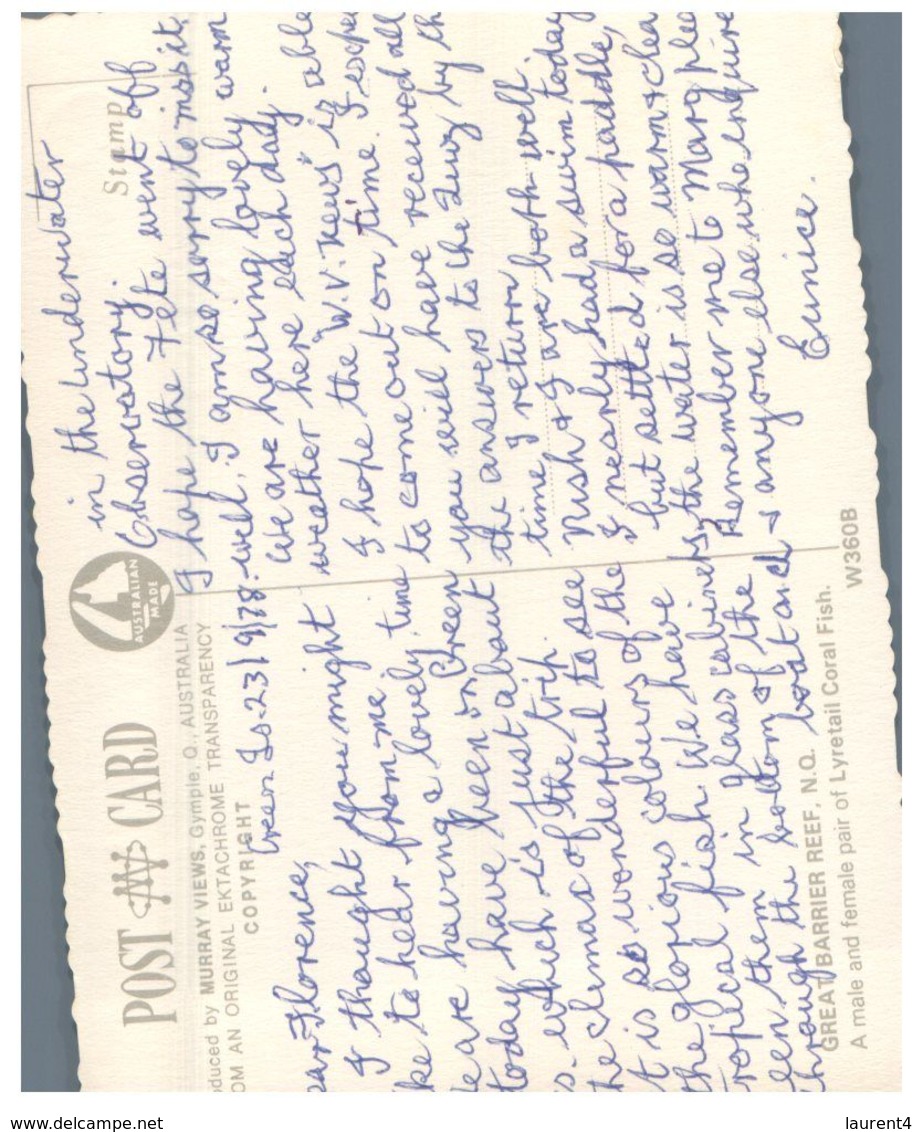 POST CARD
oduced by MURRAY VIEWS, Gympie, Q., AUSTRALIA
OM AN ORIGINAL EKTACHROME TRANSPARENCY
COPYRIGHT
AUSTRALIAN
MADE
Stamp
Green Is. 23/9/78.
ear Florence,
I thought you might
ke to hear from me
e are having a lovely time
today have been on Green
s. which is just about
the climax of the trip.
t is so wonderful to see
the glorious colours of the
tropical fish. We have
een them in glass cabinets,
through the bottom of the
boat and
in the Underwater
Observatory.
I hope the Fete went off
well, I am so sorry to miss it.
We are having lovely warm
weather here each day.
I hope the "W.V. news" is able
to come out on time. I expe
you will have received all
the answers to the Quiz by th
time I return.
Nush & I are both well.
I nearly had a swim today
but settled for a paddle,
the water is so warm & clea
Remember me to Marg plea
& anyone else who enquire
Eunice.
GREAT BARRIER REEF, N.Q.
A male and female pair of Lyretail Coral Fish.
W360B
www.delcampe.net
laurent4